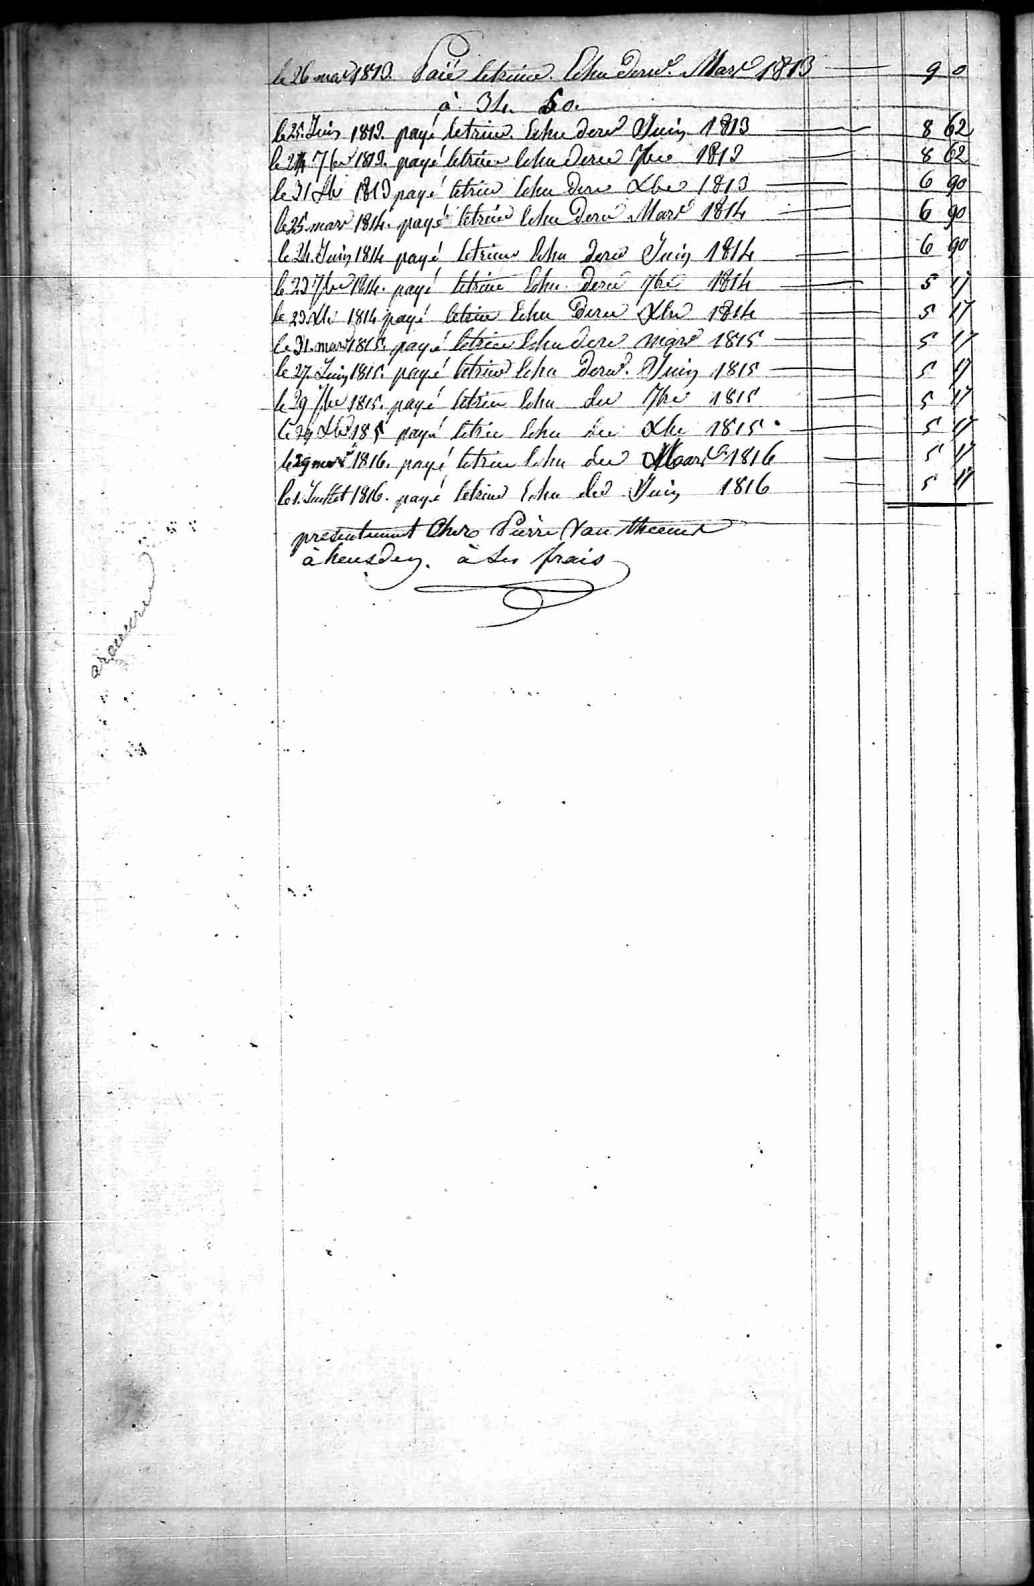 le 26 mars 1813. Paié letrim. Echu dern. Mars 1813 9 0
à 34. 50.
le 25. Juin 1813. payé letrim Echu dern Juin 1813 8 62
le 27 7bre 1813. payé letrim Echu dern 7bre 1813 8 62
le 31 Xbr 1813 payé letrim Echu dern Xbre 1813 6 90
le 25 mars 1814. payé letrim Echu dern Mars 1814 6 90
le 24. Juin 1814 payé letrim Echu dern Juin 1814 6 90
le 23 7bre 1814. payé letrim Echu dern 7bre 1814 5 17
le 23. Xbr 1814 payé letrim Echu dern Xbre 1814 5 17
le 31. mars 1815. payé letrim Echu dern mars 1815 5 17
le 27. Juin 1815. payé letrim Echu dern. Juin 1815 5 17
le 29 7bre 1815. payé letrim Echu du 7bre 1815 5 17
le 29 Xbr 1815 payé letrim Echu du Xbr 1815. 5 17
le 29 mars 1816. payé letrim Echu du Mars 1816 5 17
le 1. Juillet 1816. payé letrim Echu du Juin 1816 5 17
presentement Chez Pierre Van
à heusden. à Ses frais